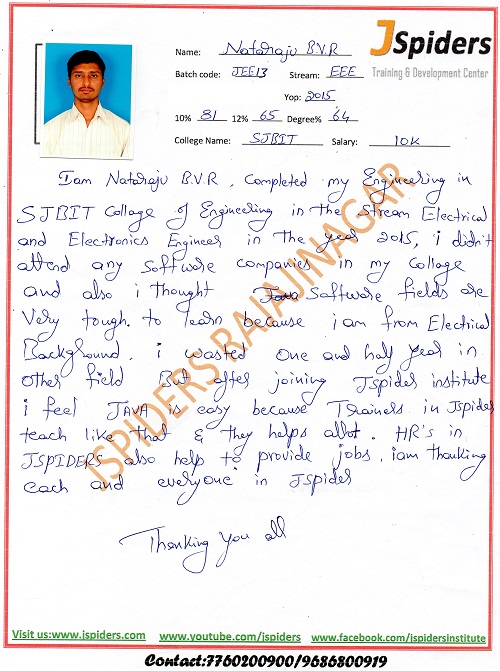 JSpiders
Training & Development Center
Name: Nataraju B.V.R
Batch code: JEE13 Stream: EEE
Yop: 2015
10% 81 12% 65 Degree% 64
College Name: SJBIT Salary: 10K
Iam Nataraju B.V.R, Completed my Engineering in
SJBIT Collage of Engineering in the Stream Electrical
and Electronics Engineer in the year 2015, i didn't
attend any Software companies in my Collage
and also i thought Software fields are
very tough to learn because i am from Electrical
Background. i wasted one and half year in
other field But after joining Jspider institute
i feel JAVA is easy because Trainers in Jspider
teach like that & they helps allot. HR's in
JSPIDERS also help to provide jobs, iam thanking
each and everyone in Jspider
Thanking you all
JSPIDERS RAJAJINAGAR
Visit us:www.jspiders.com www.youtube.com/jspiders www.facebook.com/jspidersinstitute
Contact:7760200900/9686800919